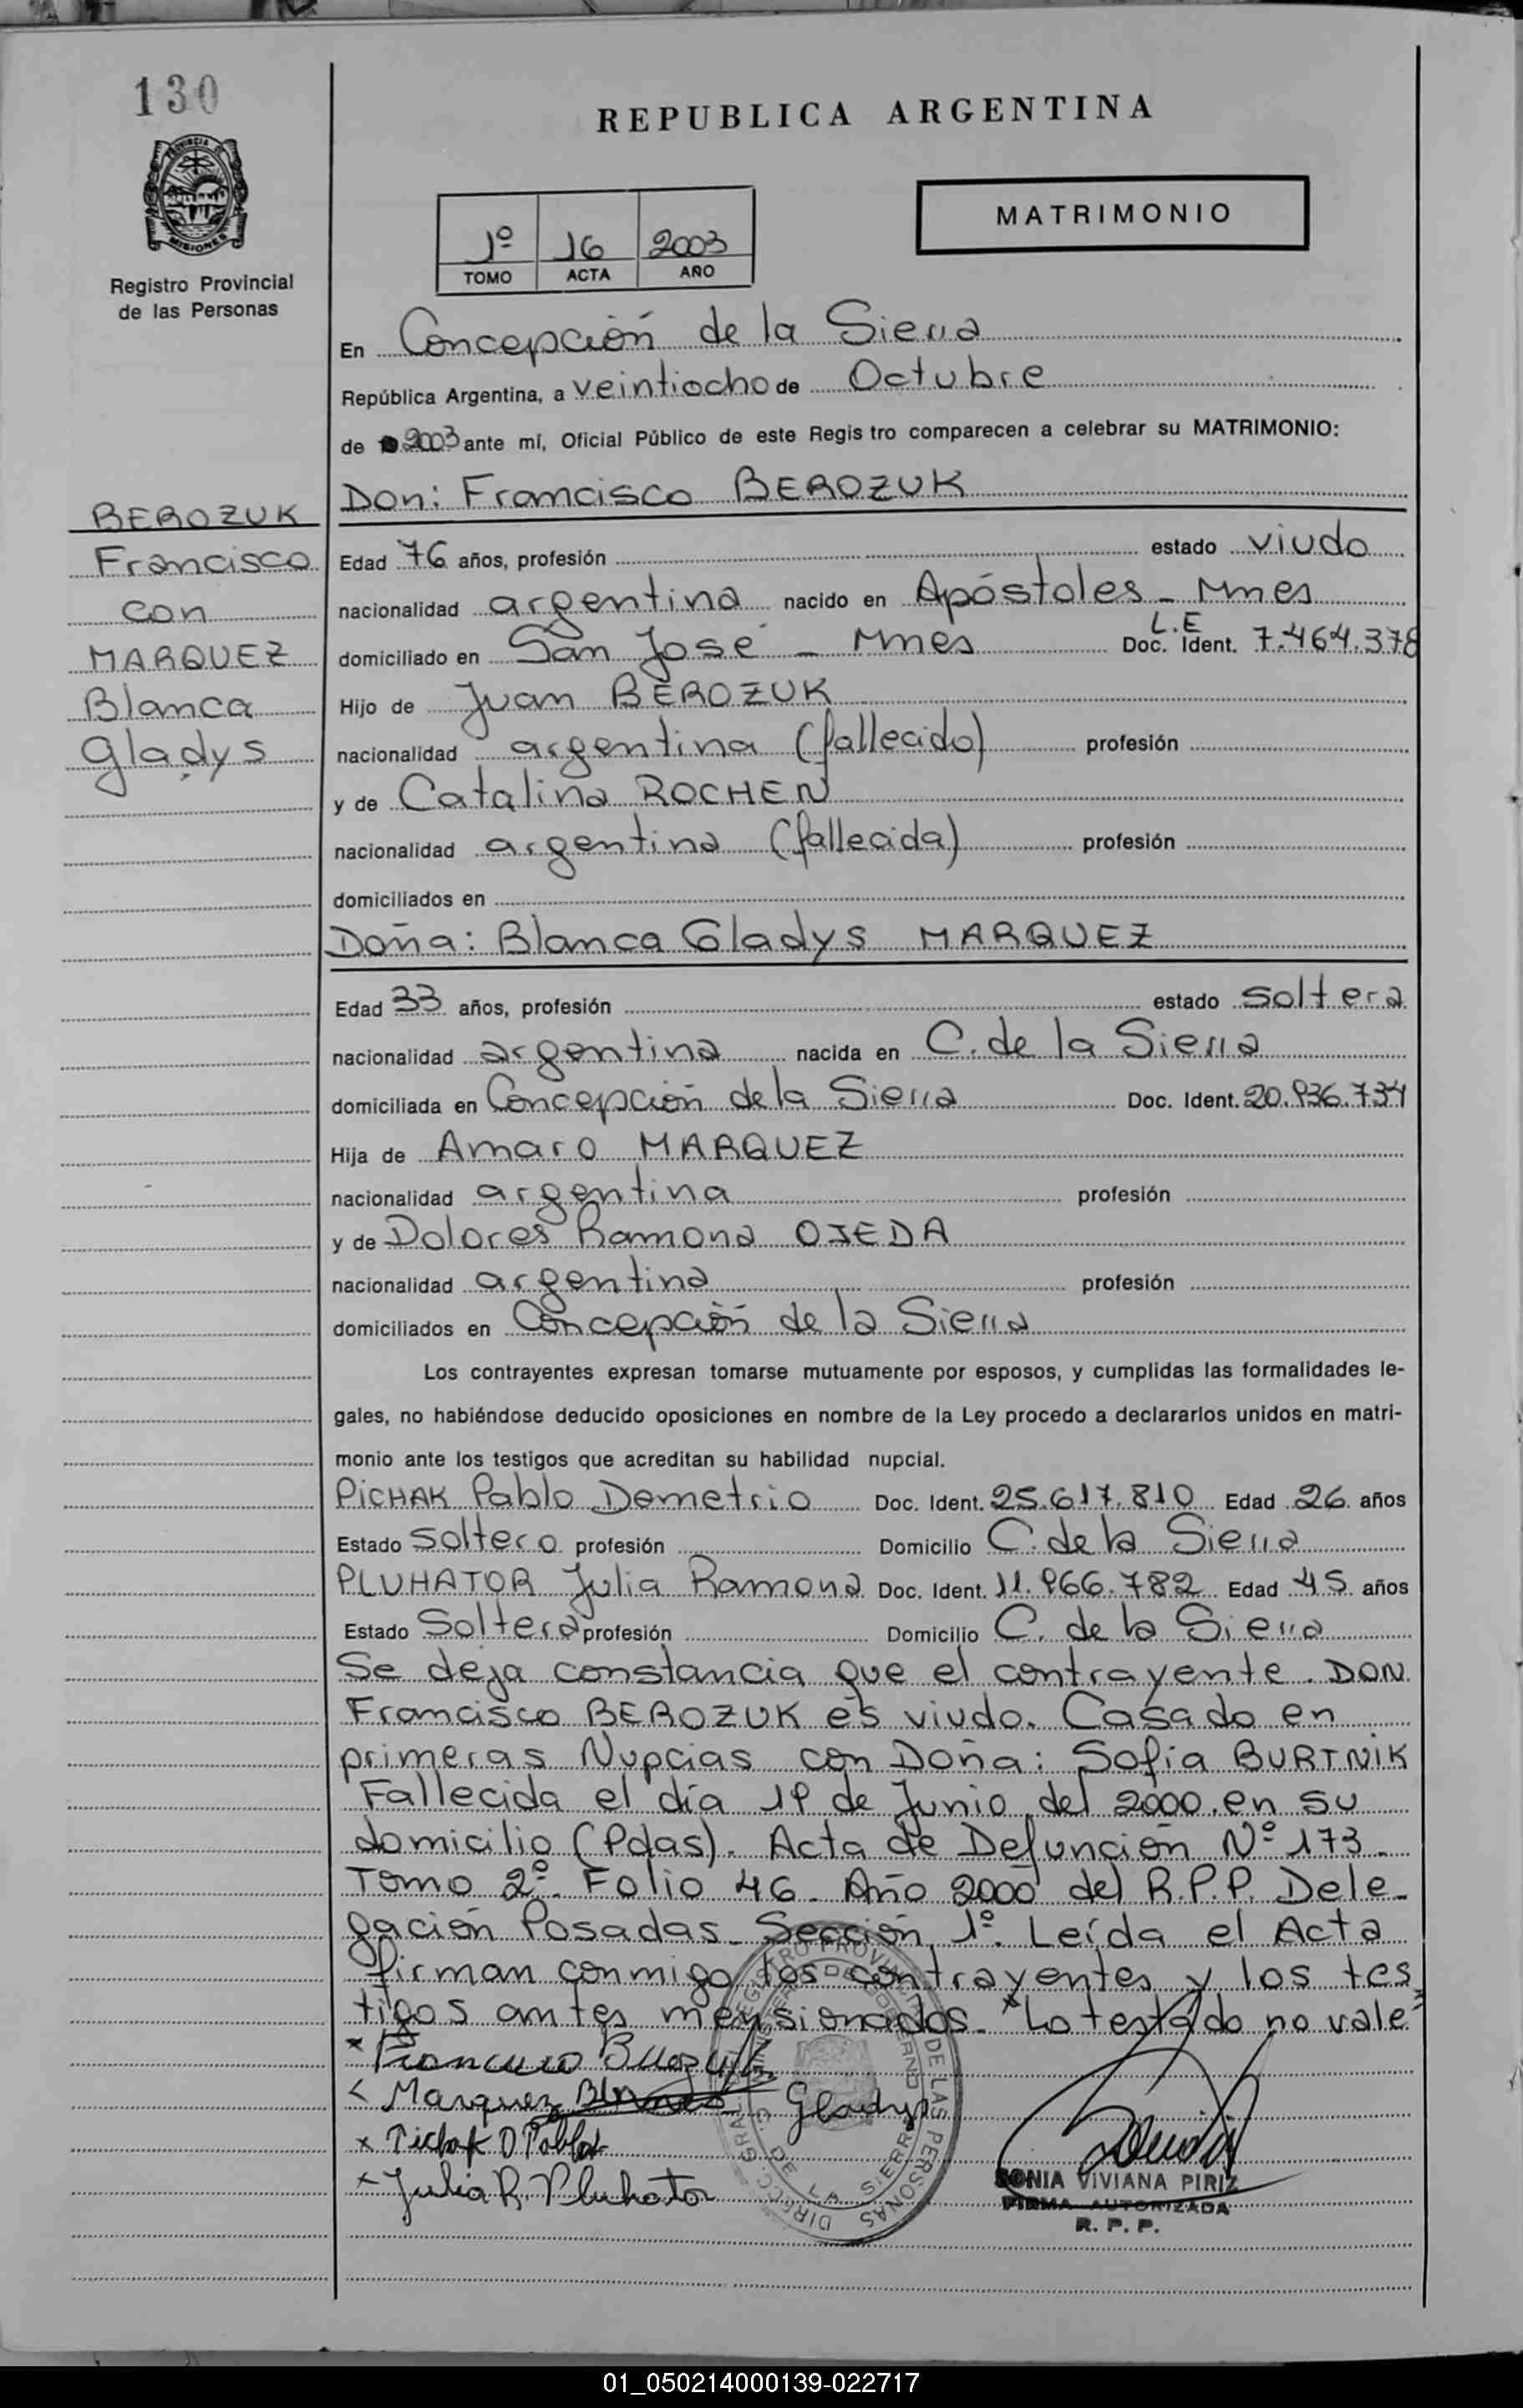 130
REPUBLICA ARGENTINA
PROVINCIA DE MISIONES
Registro Provincial
de las Personas
MATRIMONIO
1º 16 2003
TOMO ACTA AÑO
En Concepción de la Sierra
República Argentina, a veintiocho de Octubre
de 2003 ante mí, Oficial Público de este Regis tro comparecen a celebrar su MATRIMONIO:
Don: Francisco BEROZUK
BEROZUK
Francisco
con
MARQUEZ
Blanca
Gladys
Edad 76 años, profesión estado viudo
nacionalidad argentina nacido en Apóstoles - Mnes
domiciliado en San José - Mnes L.E Doc. Ident. 7.464.378
Hijo de Juan BEROZUK
nacionalidad argentina (fallecido) profesión
y de Catalina ROCHEN
nacionalidad argentina (fallecida) profesión
domiciliados en
Doña: Blanca Gladys MARQUEZ
Edad 33 años, profesión estado soltera
nacionalidad argentina nacida en C. de la Sierra
domiciliada en Concepción de la Sierra Doc. Ident. 20.936.734
Hija de Amaro MARQUEZ
nacionalidad argentina profesión
y de Dolores Ramona OJEDA
nacionalidad argentina profesión
domiciliados en Concepción de la Sierra
Los contrayentes expresan tomarse mutuamente por esposos, y cumplidas las formalidades le-
gales, no habiéndose deducido oposiciones en nombre de la Ley procedo a declararlos unidos en matri-
monio ante los testigos que acreditan su habilidad nupcial.
PICHAK Pablo Demetrio Doc. Ident. 25.617.810 Edad 26 años
Estado Soltero profesión Domicilio C. de la Sierra
PLUHATOR Julia Ramona Doc. Ident. 11.966.782 Edad 45 años
Estado Soltera profesión Domicilio C. de la Sierra
Se deja constancia que el contrayente DON
Francisco BEROZUK es viudo. Casado en
primeras Nupcias con Doña: Sofía BURTNIK
Fallecida el día 19 de Junio del 2000 en su
domicilio (Pdas). Acta de Defunción Nº 173.
Tomo 2º. Folio 46. Año 2000 del R.P.P. Dele-
gación Posadas - Sección 1º. Leída el Acta
firman conmigo los contrayentes y los tes
tigos antes mensionados. "Lo testado no vale"
x Francisco Berozuk
x Marquez Gladys
x Pichak D Pablo
x Julia R. Pluhator
SONIA VIVIANA PIRIZ
FIRMA AUTORIZADA
R. P. P.
01_050214000139-022717